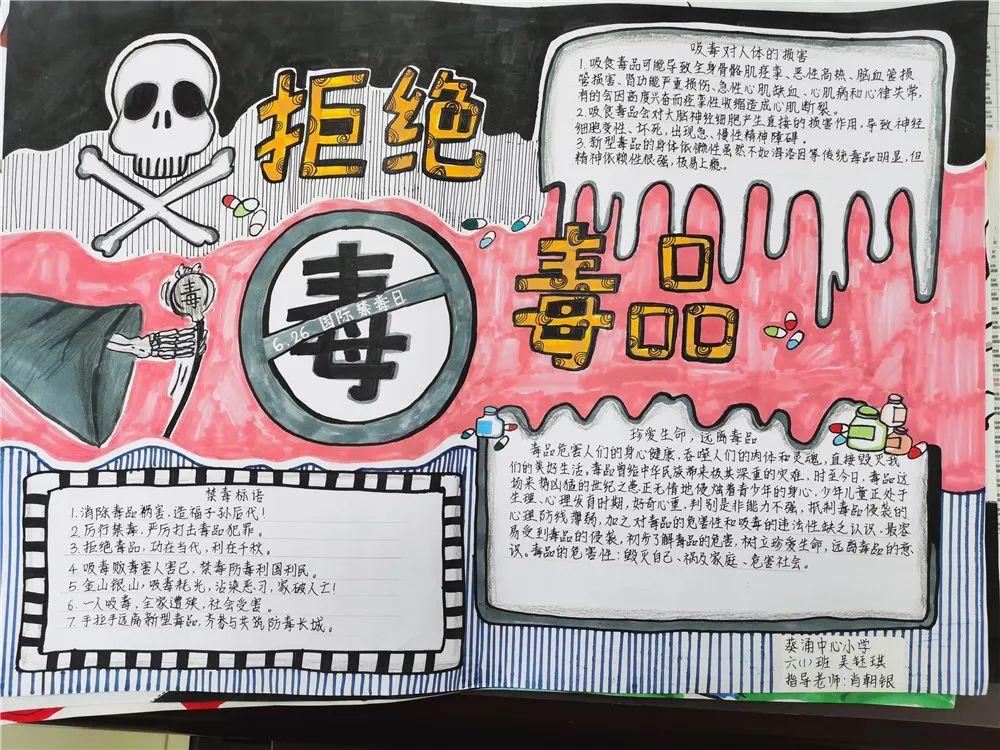 拒绝
毒品
毒
6.26 国际禁毒日
毒
吸毒对人体的损害
1.吸食毒品可能导致全身骨骼肌痉挛、恶性高热、脑血管损
管损害、肾功能严重损伤、急性心肌缺血、心肌病和心律失常,
有的会因高度兴奋而痉挛性收缩造成心肌断裂。
2.吸食毒品会对大脑神经细胞产生直接的损害作用,导致神经
细胞变性、坏死,出现急、慢性精神障碍。
3.新型毒品的身体依懒性虽然不如海洛因等传统毒品明显,但
精神依赖性很强,极易上瘾。
禁毒标语
1.消除毒品祸害,造福子孙后代!
2.厉行禁毒,严厉打击毒品犯罪。
3.拒绝毒品,功在当代,利在千秋。
4.吸毒贩毒害人害己,禁毒防毒利国利民。
5.金山银山,吸毒耗光,沾染恶习,家破人亡!
6.一人吸毒,全家遭殃,社会受害。
7.手拉手远离新型毒品,齐参与共筑防毒长城。
珍爱生命,远离毒品
毒品危害人们的身心健康,吞噬人们的肉体和灵魂,直接毁灭我
们的美好生活,毒品曾给中华民族带来极其深重的灾难,时至今日,毒品这
场来势凶猛的世纪之患正无情地侵蚀着青少年的身心,少年儿童正处于
生理、心理发育时期,好奇心重,判别是非能力不强,抵制毒品侵袭的
心理防线薄弱,加之对毒品的危害性和吸毒的违法性缺乏认识,最容
易受到毒品的侵袭,初步了解毒品的危害,树立珍爱生命,远离毒品的意
识。毒品的危害性:毁灭自己、祸及家庭、危害社会。
葵涌中心小学
六(1)班 吴钰琪
指导老师:肖朝银